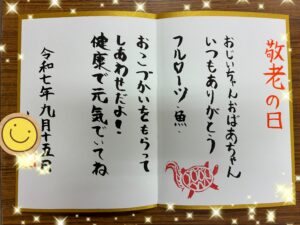 敬老の日
おじいちゃんおばあちゃん
いつもありがとう
フルーツ・魚・
おこづかいをもらって
しあわせだよ!
健康で元気でいてね
令和七年九月十五日